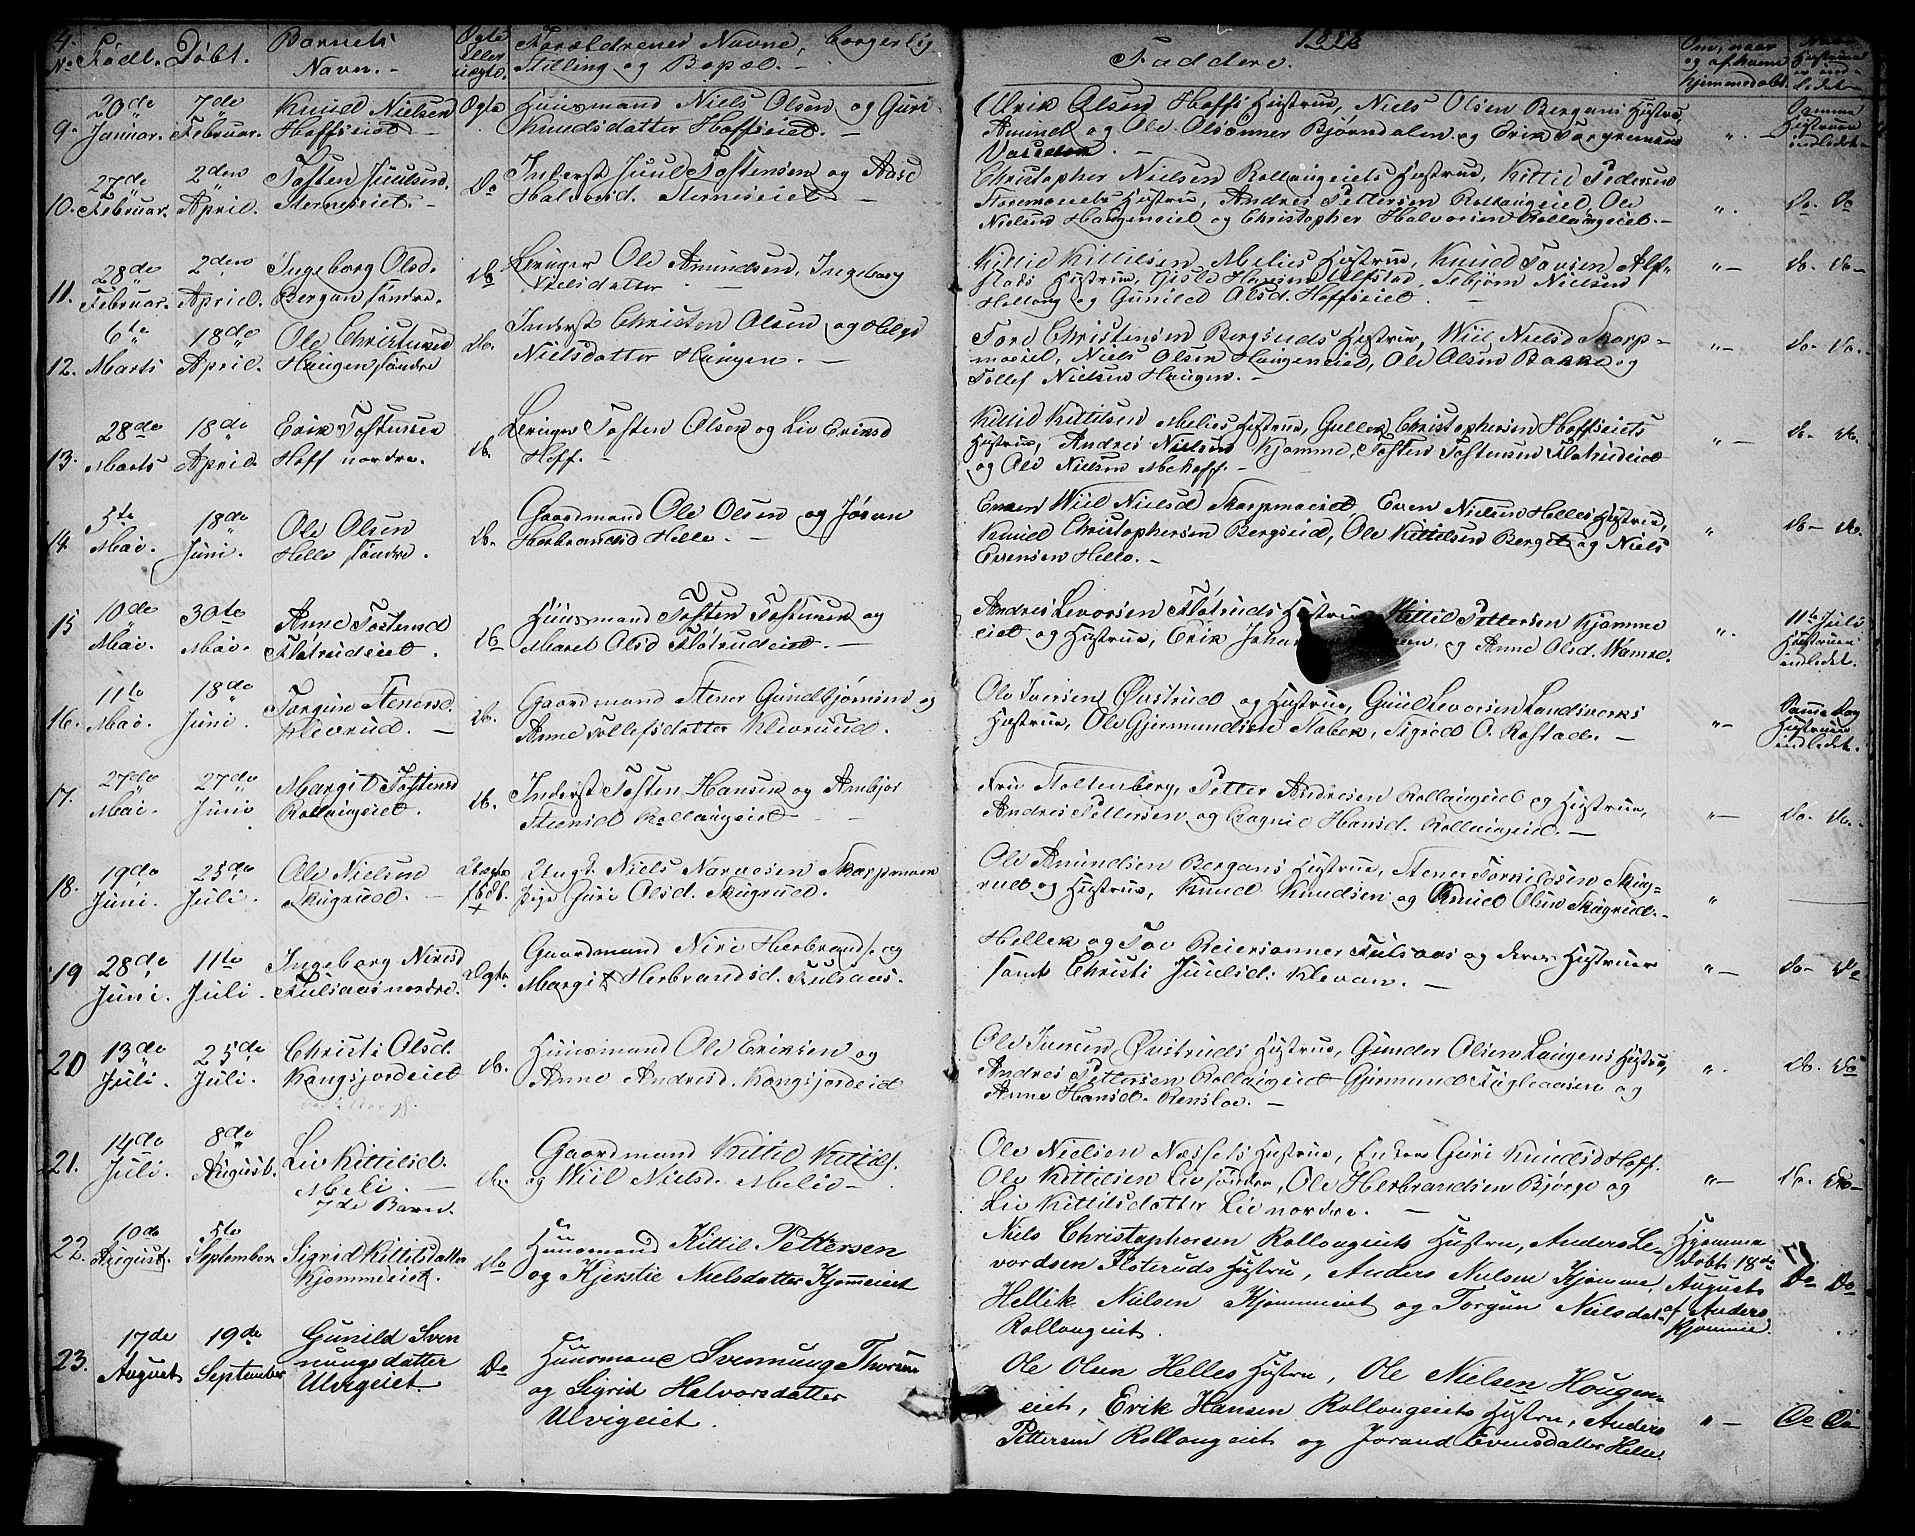 No. Født. Døbt. Barnets Navn. Ægte eller uægte. Forældrenes Navne, borgerlig Stilling og Bopæl. 1858 Faddere. Om, naar og af hvem hjemmedøbt.
9. 20de Januar. 7de Februar. Knud Nielsen Hoffseiet. Ægte Huusmand Niels Olsen og Guri
Knudsdatter Hoffseiet.
Erik Olsens Hoffs Hustrue, Niels Olsen Bergans Hustrue,
Amund og Ole Olsønner Bjørndalen og Erik
Samme Hustruen indledet
10. 27de Februar. 2den April. Tosten Juulsen Sterneseiet. Do Inderst Juul Tostensen og Aase
Halvorsd. Sterneseiet
Christopher Nielsen Rollaugeiets Hustrue, Kittil Pedersen
Hustrue, Andres Pettersen Rollaugeiet, Ole
Nielsen Haugeneiet og Christopher Halvorsen Rollaugeiet.
Do. Do
11. 28de Februar. 2den April. Ingeborg Olsd. Bergan søndre. Do Leruger Ole Amundsen, Ingeborg
Nielsdatter
Kittil Kittilsen Melies Hustrue, Knud Tovsen
Hustrue, Gisle Hansen Ulfstad, Tebjørn Nielsen
Hellaug og Gunild Olsd. Hoffseiet.
Do. Do.
12. 6te Marts 18de April. Ole Christensen Haugen søndre Do. Inderst Christen Olsen og Helge
Nielsdatter Haugen.
Tore Christensen Bergsruds Hustrue, Wiil Nielsd Skarp-
moeiet, Niels Olsen Haugeneiet, Ole Olsen Bakke og
Tollef Nielsen Haugen.
Do. Do.
13. 28de Marts 18de April. Erik Tostensen Hoff nordre. Do. Leruger Tosten Olsen og Liv Eriksd
Hoff.
Kittil Kittilsen Melies Hustrue, Gullek Christophersen Hoffseiets
Hustrue, Andres Nielsen Kjomme, Tosten Tostensen Fløtrudeiet
og Ole Nielsen Mehoff.
Do. Do.
14. 5te Mai. 18de Juni. Ole Olsen Helle søndre. Do. Gaardmand Ole Olsen og Jøran
Herbrandsd Helle.
Wiil Nielsd Skarpmoeiet Even Nielsen Helles Hustrue,
Knud Christophersen Bergseid, Ole Kittilsen Berget og Niels
Evensen Helle.
Do. Do.
15 10de Mai. 30te Mai. Anne Tostensd Fløtrudeiet. Do Huusmand Tosten Tostensen og
Maret Olsd Fløtrudeiet.
Andres Levorsen Fløtruds Hustrue, Kittil Pettersen Kjomme
eiet og Hustrue, Erik og Anne Olsd. Wamre.
11te Juli Hustruen indledet.
16. 11te Mai. 18de Juni. Torgun Stenersd. Klevrud. Do. Gaardmand Stener Gundbjørnsen og
Anne Tollefsdatter Klevrud.
Ole Iversen Øvstrud og Hustrue, Guul Levorsen Landsverks
Hustrue, Ole Gjermundsen Stabek, Sigrid O. Rostad.
Samme Dag Hustruen indledet.
17. 27de Mai. 27de Juni Margit Tostensd Rollaugeiet. Do. Inderst Tosten Hansen og Ambjør
Stensd Rollaugeiet
Fru Stoltenberg, Petter Andresen Rollaugeiet og Hustrue,
Andres Pettersen og Ragnil Hansd. Rollaugeiet.
Do. Do.
18. 19de Juni. 25de Juli. Ole Nielsen Skugrud. Uægte Ungk. Niels Narvesen Skarpmoen
Pige Guri Olsd. Skugrud.
Ole Amundsen Bergans Hustrue, Stener Torkildsen Skug-
rud og Hustrue, Knud Knudsen og Knud Olsen Skugrud.
19 28de Juni. 11te Juli. Ingeborg Nirisd Fulsaas nordre. Ægte. Gaardmand Niri Herbrands. og
Margit Herbrandsd. Fulsaas.
Hellek og Tov Reiersønner Fulsaas og deres Hustruer
samt Christi Juulsd: Klevan.
Do. Do
20 13de Juli. 25de Juli. Christi Olsd. Kongsjordeiet Do. Huusmand Ole Eriksen og
Anne Andresd. Kongsjordeid
Ole Iversen Øvstruds Hustrue, Gunder Olsen Laugens Hustrue,
Andres Pettersen Rollaugeiet Gjermund Fugleaasen og
Anne Hansd. Rensloe.
Do. Do
21. 14de Juli. 8de August. Liv Kittilsd. Meli. 7de Barn. Do. Gaardmand Kittil Kittils.
og Wiil Nielsd. Melie
Ole Nielsen Næssets Hustrue, Enken Guri Knudsd Hoff.
Ole Kittilsen Lie søndre, Ole Herbrandsen Bjørge og
Liv Kittilsdatter Lie nordre.
Do. Do
22. 10de August. 5te September Sigrid Kittilsdatter Kjommeiet. Do Huusmand Kittil Pettersen
og Kjerstie Nielsdatter Kjømeiet
Nils Christophersen Rollougeiets Hustru, Anders Le-
vordsen Fløteruds Hustru, Anders Nielsen Kjømme,
Hellik Nielsen Kjømmeiet og Torgun Nielsdat.
Rollougeiet.
Hjemme døbt 18de August af Anders Kjømme.
Do Do
23. 17de August 19de September Gunild Svennungsdatter Ulvigeiet Do Huusmand Svennung Thorsen
og Sigrid Halvorsdatter
Ulvigeiet.
Ole Olsen Helles Hustru, Ole Nielsen Hougen-
eiet, Erik Hansen Rollougeiets Hustru, Anders
Pettersen Rollougeiet og Jorand Evensdatter Helle.
Do Do